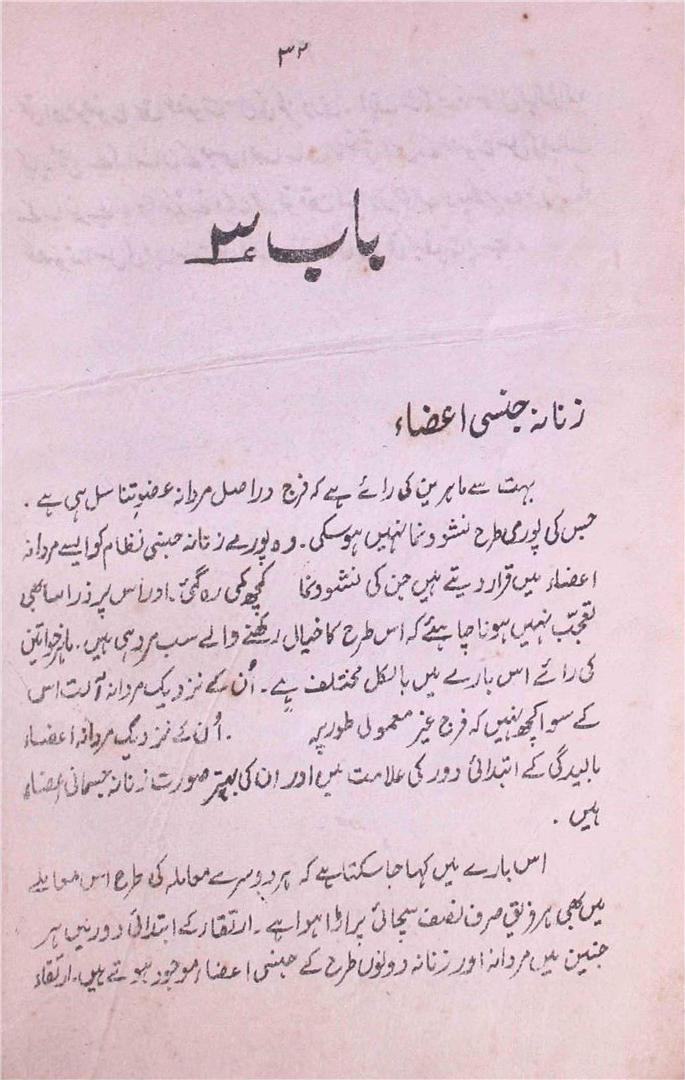 ۳۲
باب ۳
زنانہ جنسی اعضاء
بہت سے ماہرین کی رائے ہے کہ فرج دراصل مردانہ عضوِ تناسل ہی ہے ۔
جس کی پوری طرح نشوونما نہیں ہوسکی ۔ وہ پورے زنانہ جنسی نظام کو ایسے مردانہ
اعضاء میں قرار دیتے ہیں جن کی نشوونما کچھ کمی رہ گئی ۔ اور اس پر ذرا سا بھی
تعجّب نہیں ہونا چاہیئے کہ اس طرح کا خیال رکھنے والے سب مرد ہی ہیں ۔ ماہر خواتین
کی رائے اس بارے میں بالکل مختلف ہے ۔ اُن کے نزدیک مردانہ آلت اس
کے سوا کچھ نہیں کہ فرج غیر معمولی طور پہ ۔ اُن کے نزدیک مردانہ اعضاء
بالیدگی کے ابتدائی دور کی علامت ہیں اور ان کی بہتر صورت زنانہ جسمانی اعضاء
ہیں ۔
اس بارے میں کہا جا سکتا ہے کہ ہر دوسرے معاملہ کی طرح اس معاملے
میں بھی ہر فریق صرف نصف سچائی پر اڑا ہوا ہے ۔ ارتقاء کے ابتدائی دور میں ہر
جنین میں مردانہ اور زنانہ دونوں طرح کے جنسی اعضاء موجود ہوتے ہیں ۔ ارتقاء